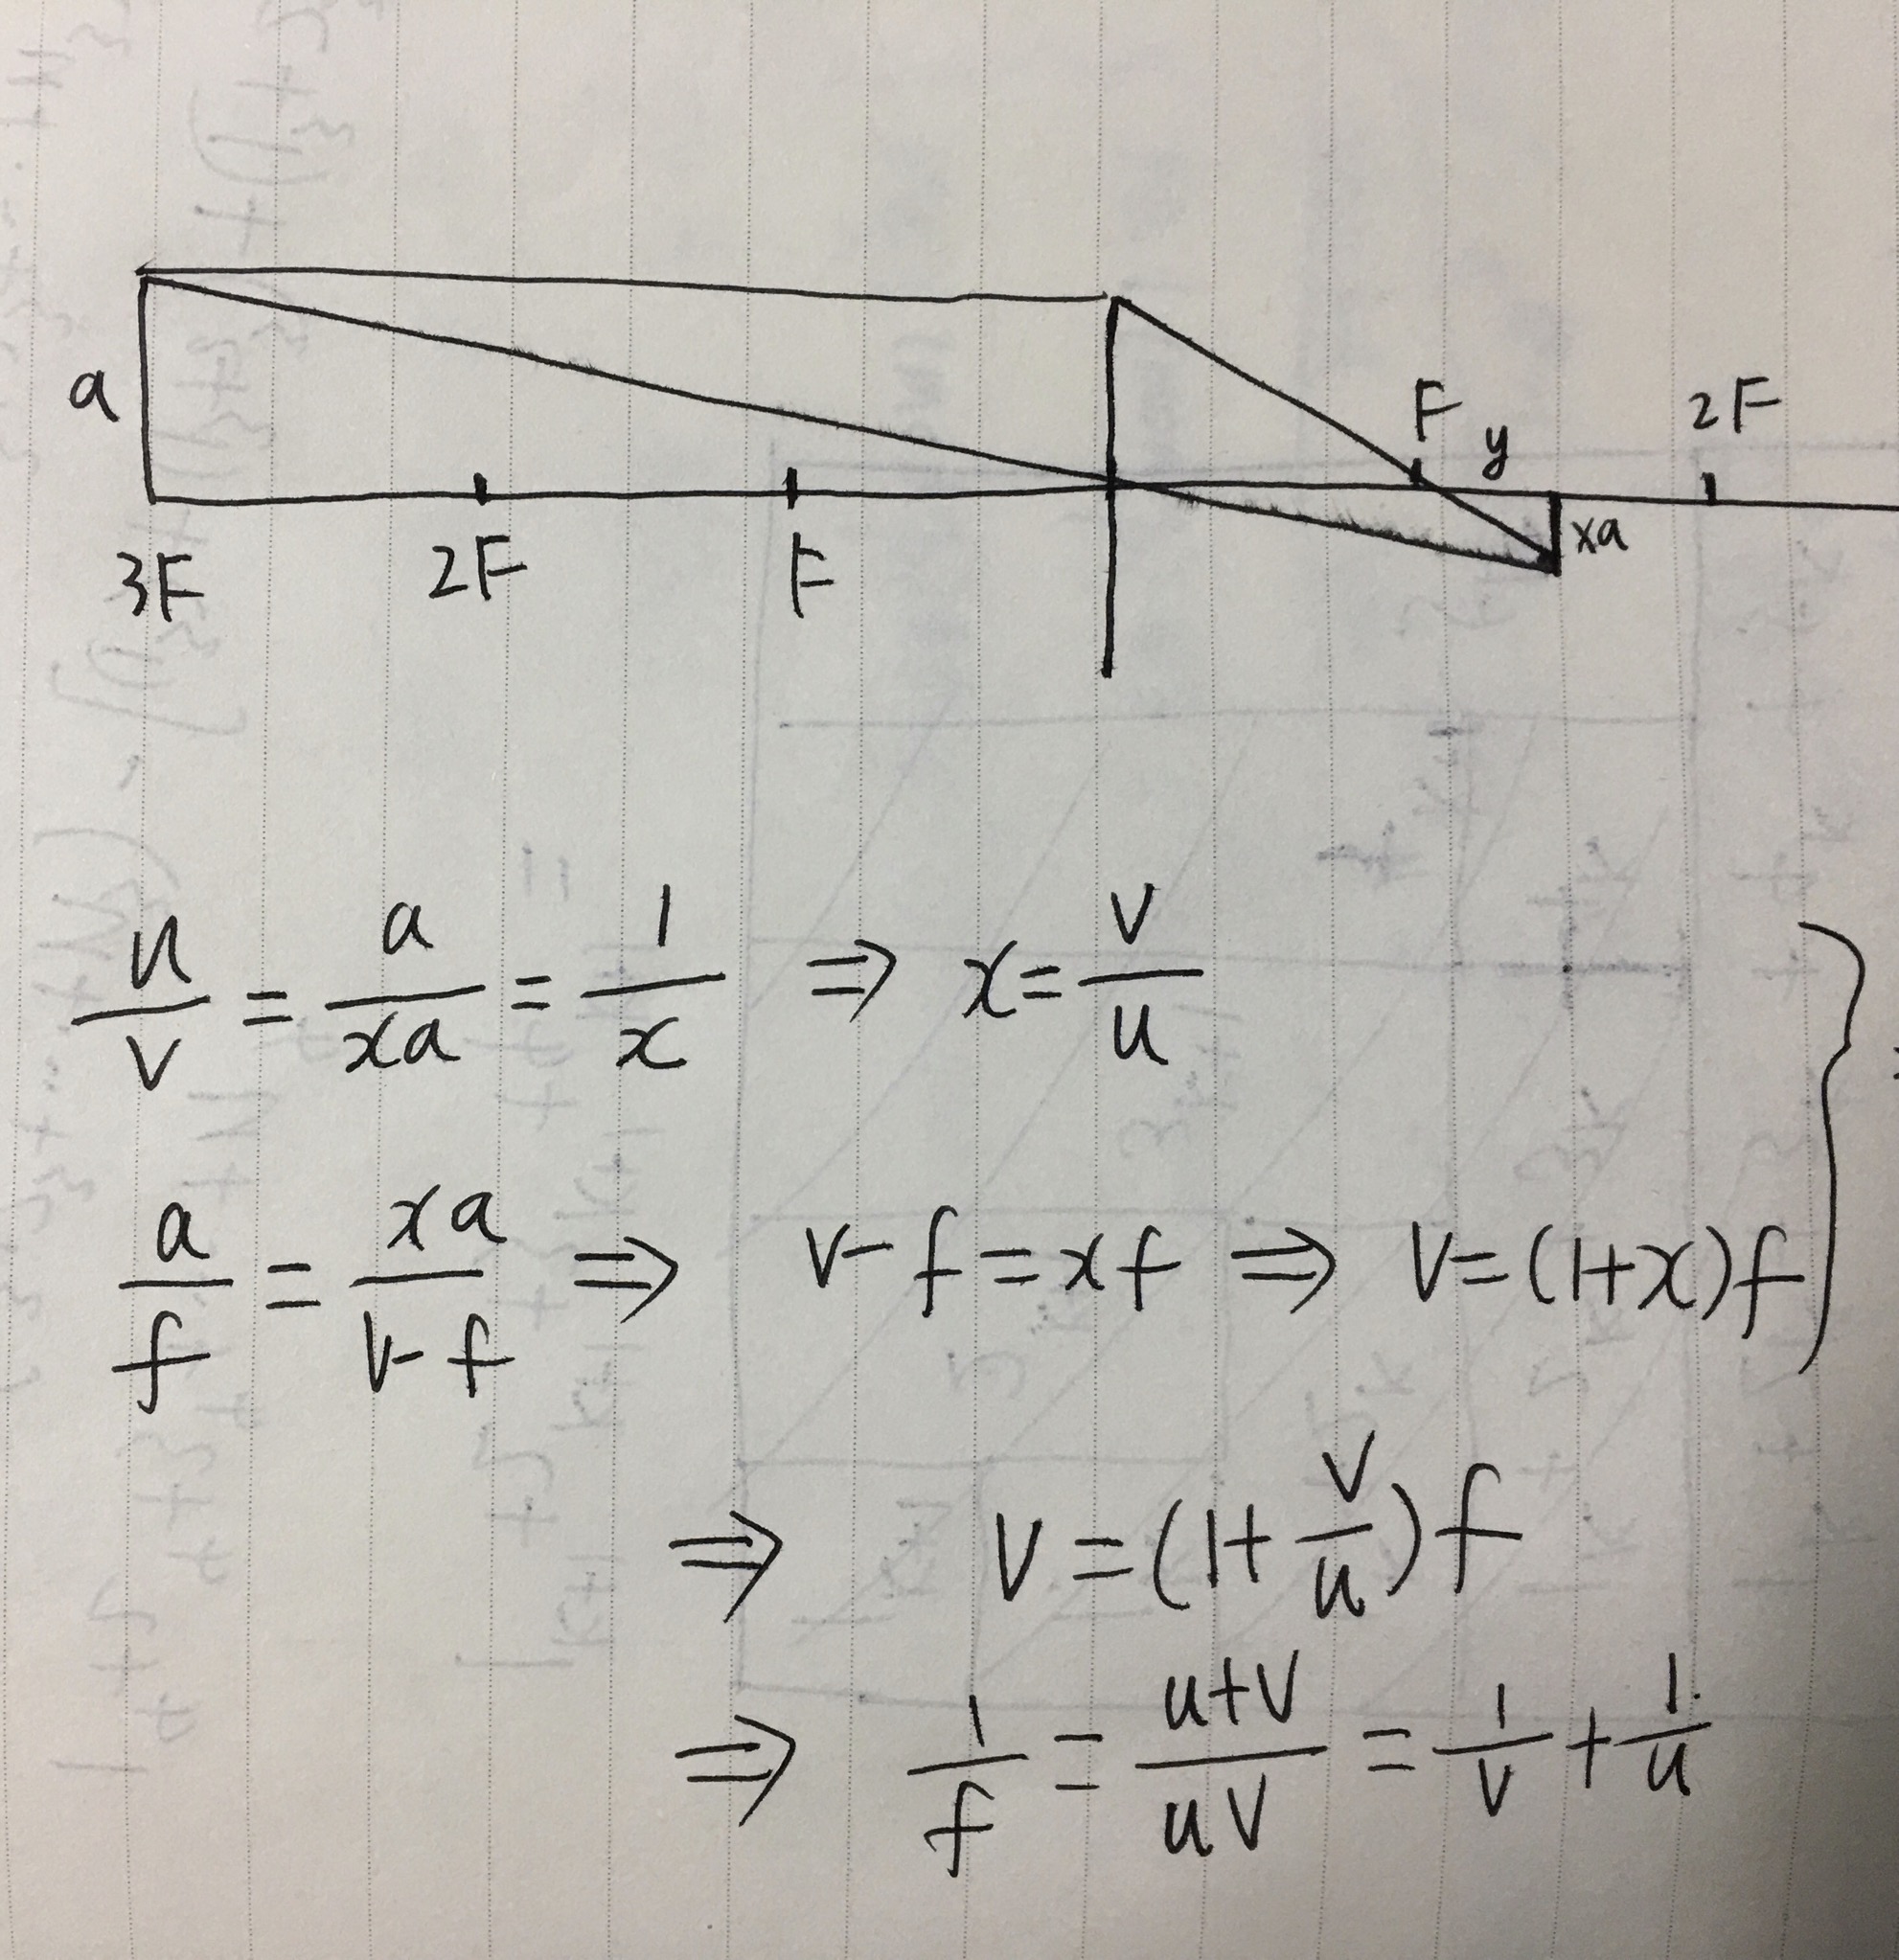 a
F y 2F
xa
3F 2F F
u/v = a/xa = 1/x ⇒ x = v/u
a/f = xa/v-f ⇒ v-f = xf ⇒ v = (1+x)f
⇒ v = (1+v/u)f
⇒ 1/f = u+v/uv = 1/v + 1/u